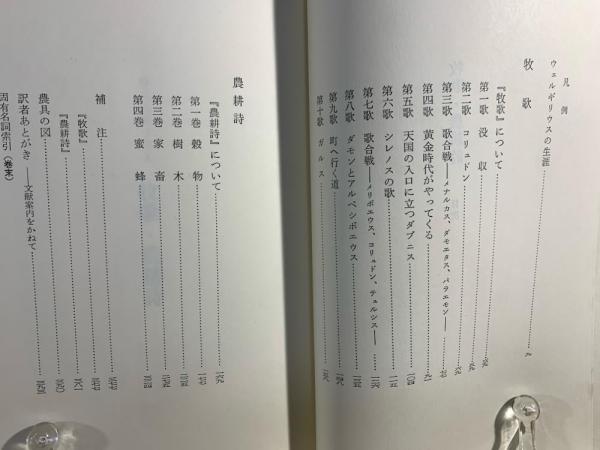 凡例
ウェルギリウスの生涯
牧歌
『牧歌』について
第一歌 没収
第二歌 コリュドン
第三歌 歌合戦――メナルカス、ダモエタス、パラエモン――
第四歌 黄金時代がやってくる
第五歌 天国の入口に立つダプニス
第六歌 シレノスの歌
第七歌 歌合戦――メリボエウス、コリュドン、テュルシス――
第八歌 ダモンとアルペシボエウス
第九歌 町へ行く道
第十歌 ガルス
農耕詩
『農耕詩』について
第一巻 穀物
第二巻 樹木
第三巻 家畜
第四巻 蜜蜂
補注
『牧歌』
『農耕詩』
農具の図
訳者あとがき――文献案内をかねて
固有名詞索引(巻末)